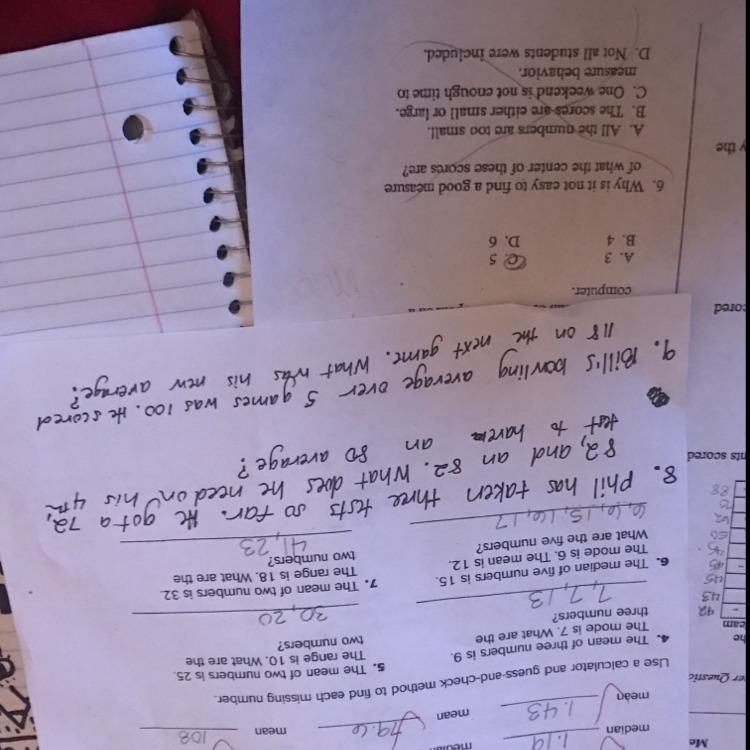 Me
median 1.19
median
mean 1.43
mean 79.6
mean 108
Use a calculator and guess-and-check method to find each missing number.
4. The mean of three numbers is 9.
The mode is 7. What are the
three numbers?
7, 7, 13
5. The mean of two numbers is 25.
The range is 10. What are the
two numbers?
30, 20
6. The median of five numbers is 15.
The mode is 6. The mean is 12.
What are the five numbers?
6, 6, 15, 16, 17
7. The mean of two numbers is 32.
The range is 18. What are the
two numbers?
41, 23
8. Phil has taken three tests so far. He got a 72,
82, and an 82. What does he need on his 4th
test to have an 80 average?
9. Bill's bowling average over 5 games was 100. He scored
118 on the next game. What was his new average?
computer.
A. 3
C. 5
B. 4
D. 6
6. Why is it not easy to find a good measure
of what the center of these scores are?
A. All the numbers are too small.
B. The scores are either small or large.
C. One weekend is not enough time to
measure behavior.
D. Not all students were included.
er Questio
42
43
45
45
45
50
62
72
88
nts scored
ored
y the